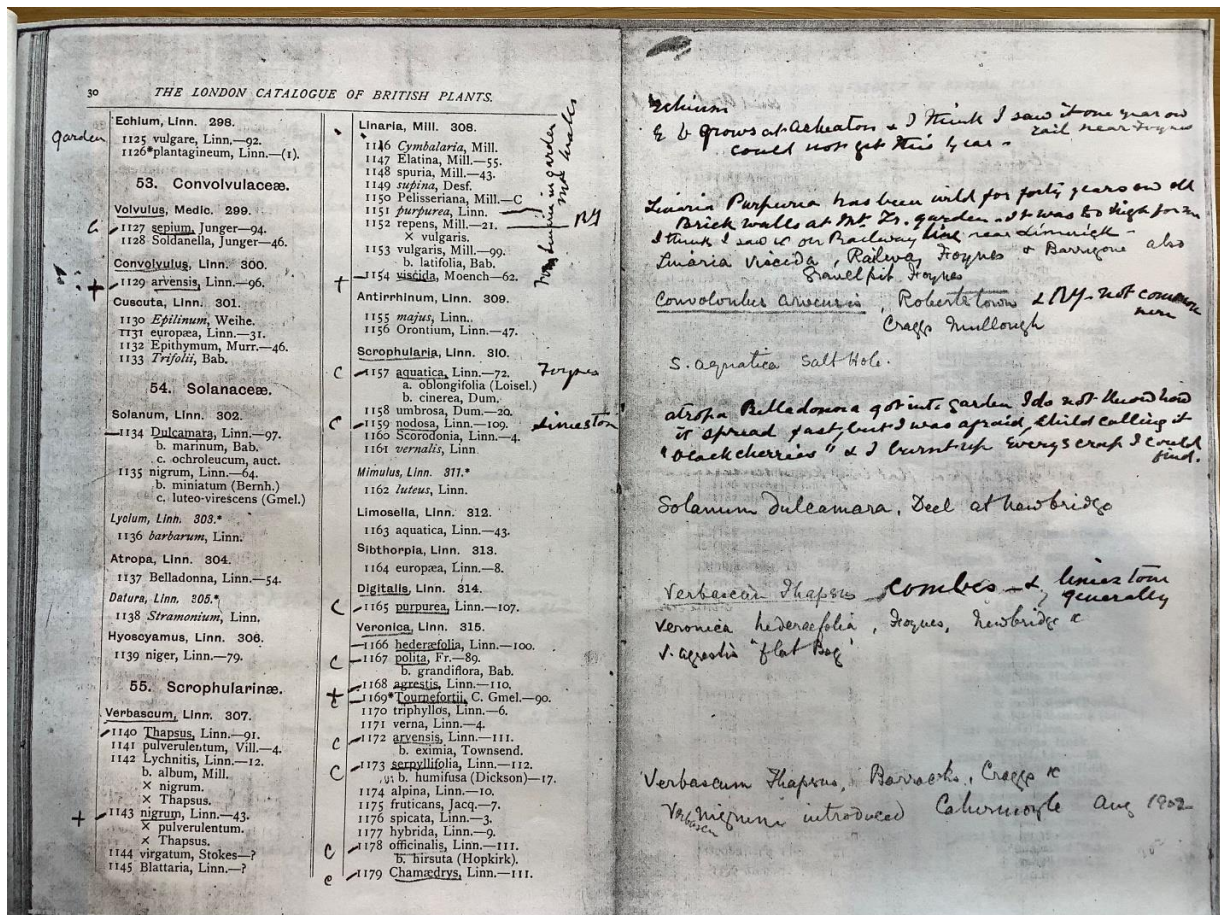 30 THE LONDON CATALOGUE OF BRITISH PLANTS.
Echium, Linn. 298.
garden 1125 vulgare, Linn.—92.
1126*plantagineum, Linn.—(1).
53. Convolvulaceæ.
Volvulus, Medic. 299.
C 1127 sepium, Junger—94.
1128 Soldanella, Junger—46.
Convolvulus, Linn. 300.
+ 1129 arvensis, Linn.—96.
Cuscuta, Linn. 301.
1130 Epilinum, Weihe.
1131 europæa, Linn.—31.
1132 Epithymum, Murr.—46.
1133 Trifolii, Bab.
54. Solanaceæ.
Solanum, Linn. 302.
1134 Dulcamara, Linn.—97.
b. marinum, Bab.
c. ochroleucum, auct.
1135 nigrum, Linn.—64.
b. miniatum (Bernh.)
c. luteo-virescens (Gmel.)
Lycium, Linn. 303.*
1136 barbarum, Linn.
Atropa, Linn. 304.
1137 Belladonna, Linn.—54.
Datura, Linn. 305.*
1138 Stramonium, Linn.
Hyoscyamus, Linn. 306.
1139 niger, Linn.—79.
55. Scrophularinæ.
Verbascum, Linn. 307.
1140 Thapsus, Linn.—91.
1141 pulverulentum, Vill.—4.
1142 Lychnitis, Linn.—12.
b. album, Mill.
× nigrum.
× Thapsus.
+ 1143 nigrum, Linn.—43.
× pulverulentum.
× Thapsus.
1144 virgatum, Stokes—?
1145 Blattaria, Linn.—?
Linaria, Mill. 308.
1146 Cymbalaria, Mill.
1147 Elatina, Mill.—55.
1148 spuria, Mill.—43.
1149 supina, Desf.
1150 Pelisseriana, Mill.—C
1151 purpurea, Linn.
1152 repens, Mill.—21. Ry
× vulgaris.
1153 vulgaris, Mill.—99.
b. latifolia, Bab.
+ 1154 viscida, Moench—62.
in garden
walls
Antirrhinum, Linn. 309.
1155 majus, Linn.
1156 Orontium, Linn.—47.
Scrophularia, Linn. 310.
C 1157 aquatica, Linn.—72. Foynes
a. oblongifolia (Loisel.)
b. cinerea, Dum.
1158 umbrosa, Dum.—20.
C 1159 nodosa, Linn.—109. Limeston
1160 Scorodonia, Linn.—4.
1161 vernalis, Linn.
Mimulus, Linn. 311.*
1162 luteus, Linn.
Limosella, Linn. 312.
1163 aquatica, Linn.—43.
Sibthorpia, Linn. 313.
1164 europæa, Linn.—8.
Digitalis, Linn. 314.
C 1165 purpurea, Linn.—107.
Veronica, Linn. 315.
1166 hederæfolia, Linn.—100.
C 1167 polita, Fr.—89.
b. grandiflora, Bab.
1168 agrestis, Linn.—110.
+ 1169*Tournefortii, C. Gmel.—90.
1170 triphyllos, Linn.—6.
1171 verna, Linn.—4.
C 1172 arvensis, Linn.—111.
b. eximia, Townsend.
C 1173 serpyllifolia, Linn.—112.
b. humifusa (Dickson)—17.
1174 alpina, Linn.—10.
1175 fruticans, Jacq.—7.
1176 spicata, Linn.—3.
1177 hybrida, Linn.—9.
C 1178 officinalis, Linn.—111.
b. hirsuta (Hopkirk).
C 1179 Chamædrys, Linn.—111.
Echium
E. v grows at Askeaton & I think I saw it one year on
rail near Foynes
could not get this year.
Linaria Purpurea has been wild for forty years on old
Brick walls at Mt. Tr. garden. It was too high for me
I think I saw it on Railway line near Limerick
Linaria viscida, Railway Foynes & Barrigone also
Gravel pit Foynes
Convolvulus arvensis, Robertstown & Ry. not common
Craggs Mullough
S. aquatica Salt Hole.
atropa Belladonna got into garden I do not know how
it spread fast, but I was afraid, child calling it
"black cherries" & I burnt up every scrap I could
find.
Solanum Dulcamara, Deel at Newbridge
Verbascum Thapsus combes & limestone
generally
Veronica hederæfolia, Foynes, Newbridge &
V. agrestis "flat Bog"
Verbascum Thapsus, Barracks, Craggs &c
Verbascum Nigrum introduced Cahermoyle Aug 1902